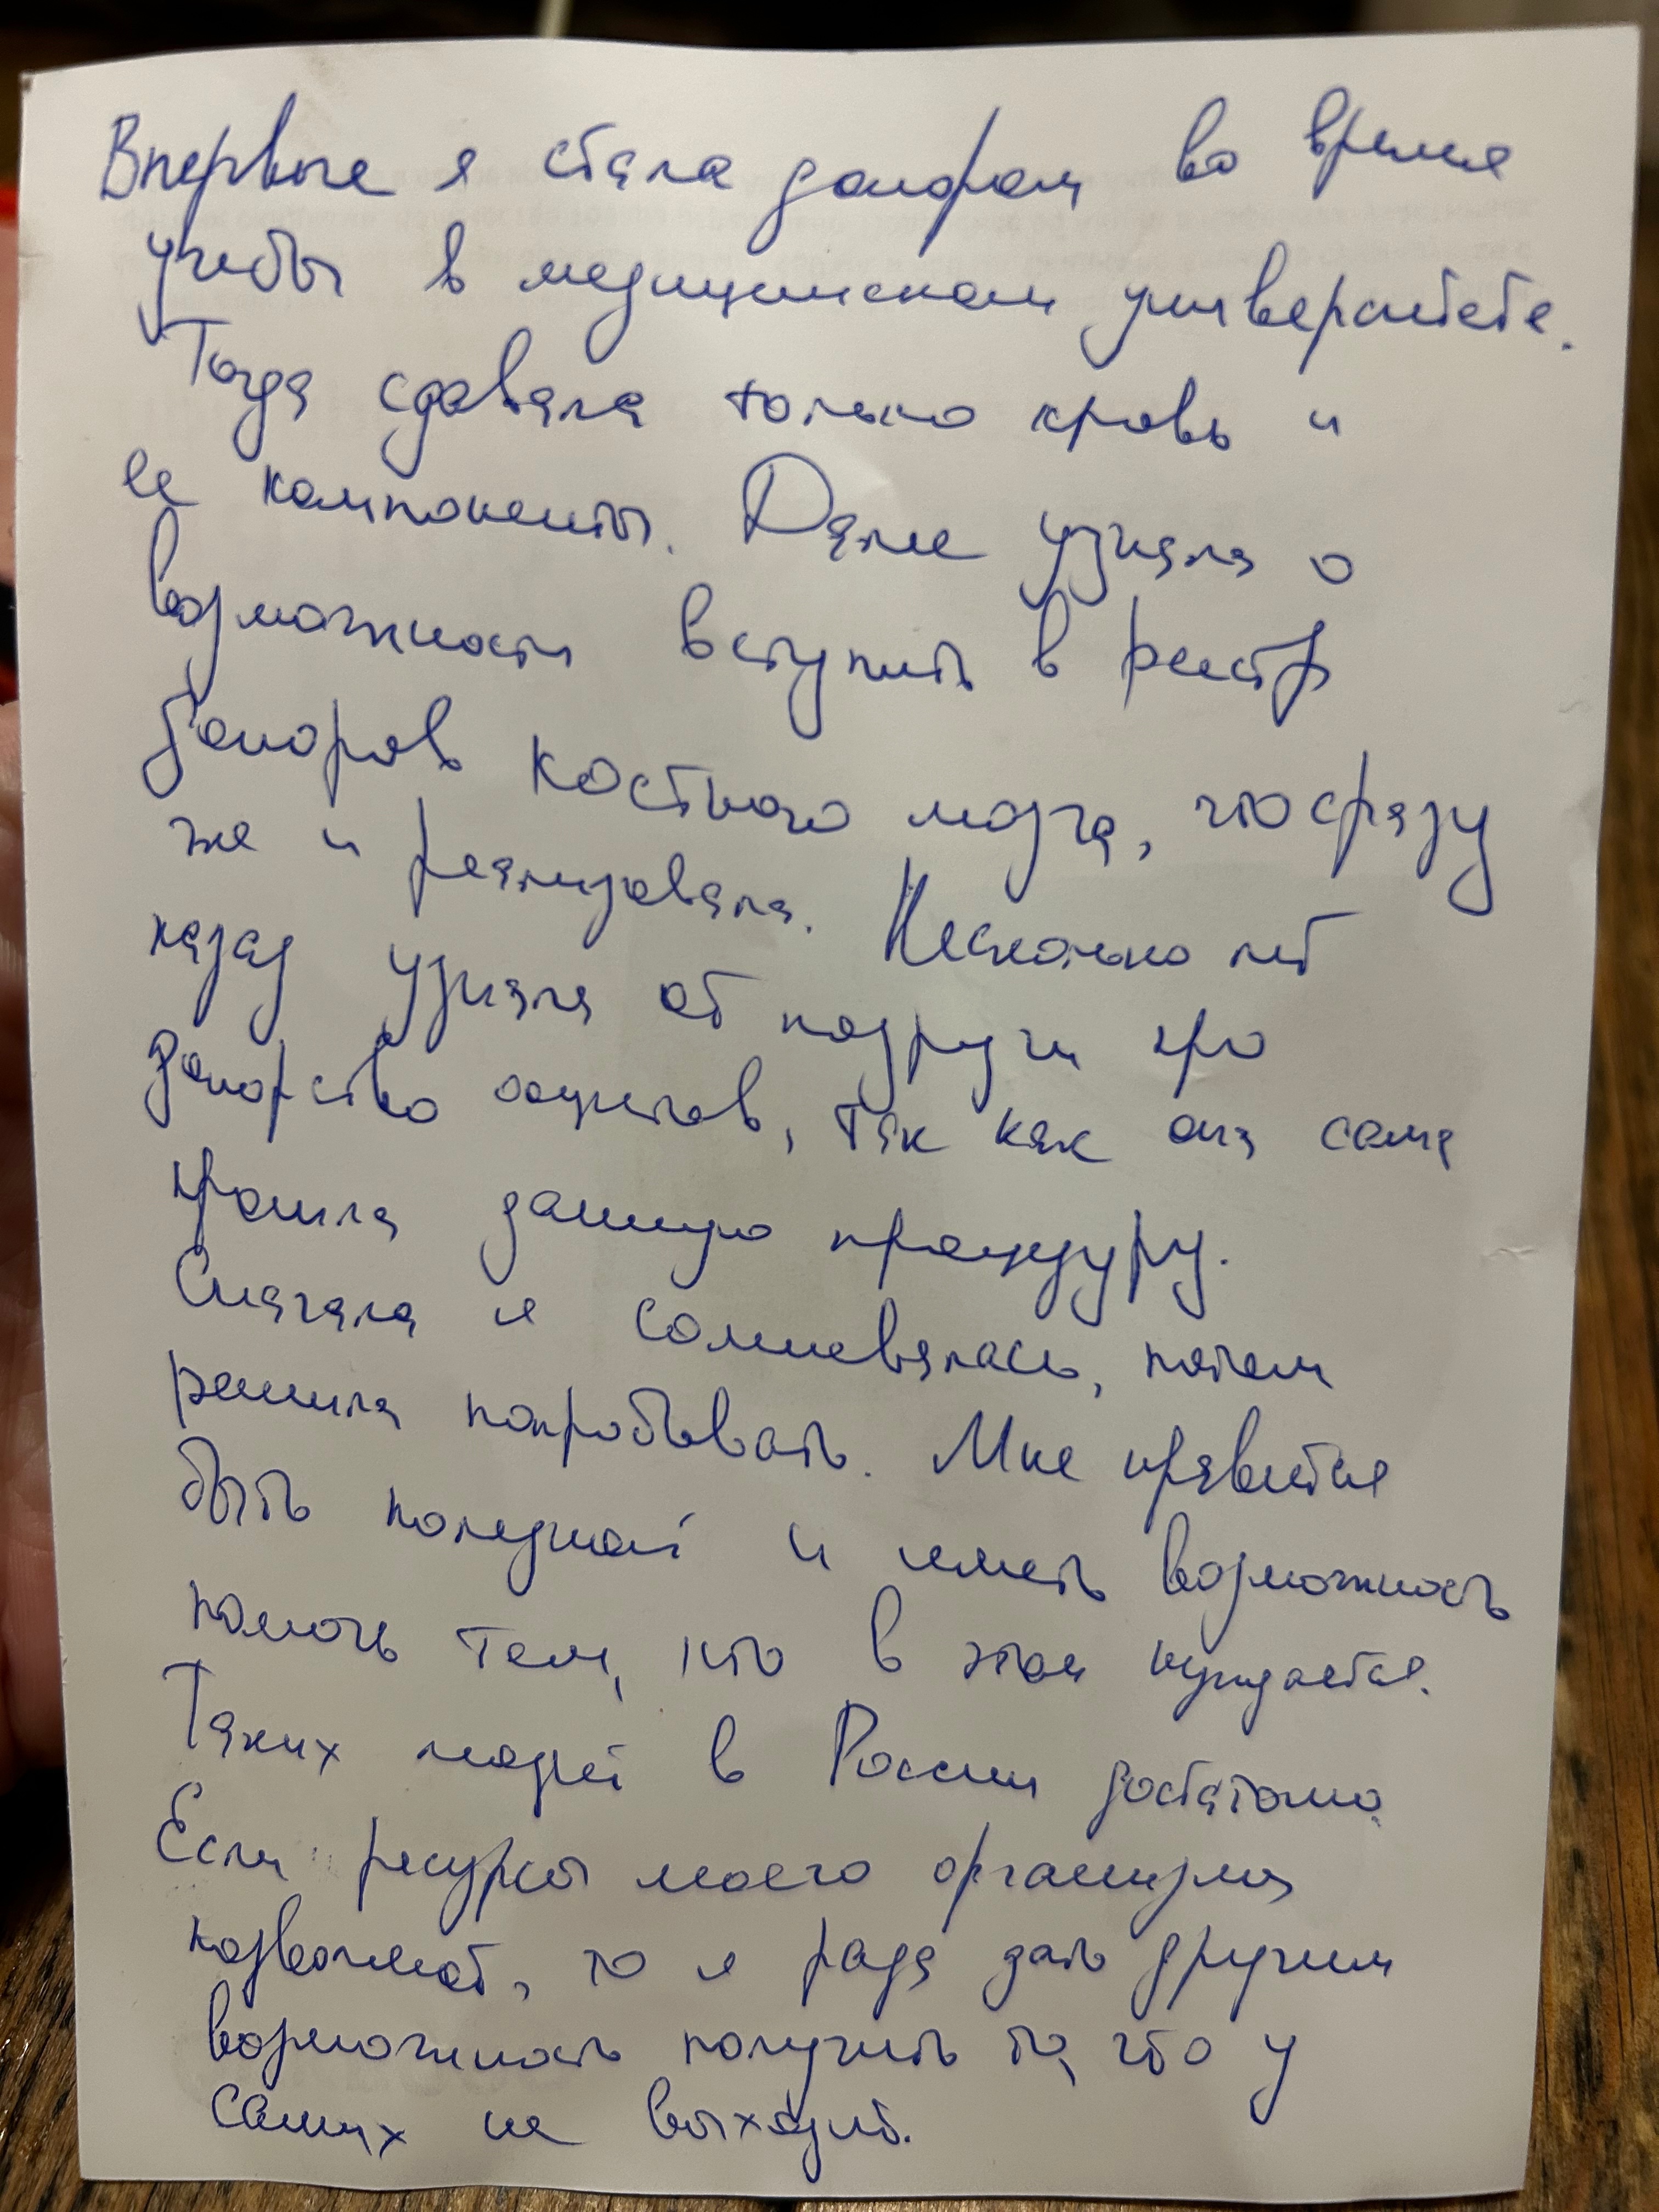 Впервые я стала донором во время
учебы в медицинском университете.
Тогда сдавала только кровь и
ее компоненты. Далее узнала о
возможности вступить в реестр
доноров костного мозга, что сразу
же и реализовала. Несколько лет
назад узнала от подруги про
донорство ооцитов, так как она сама
прошла данную процедуру.
Сначала я сомневалась, потом
решила попробывать. Мне нравится
быть полезной и иметь возможность
помочь тем, кто в этом нуждается.
Таких людей в России достаточно.
Если ресурсы моего организма
позволяют, то я рада дать другим
возможность получить то, что у
самих не выходит.